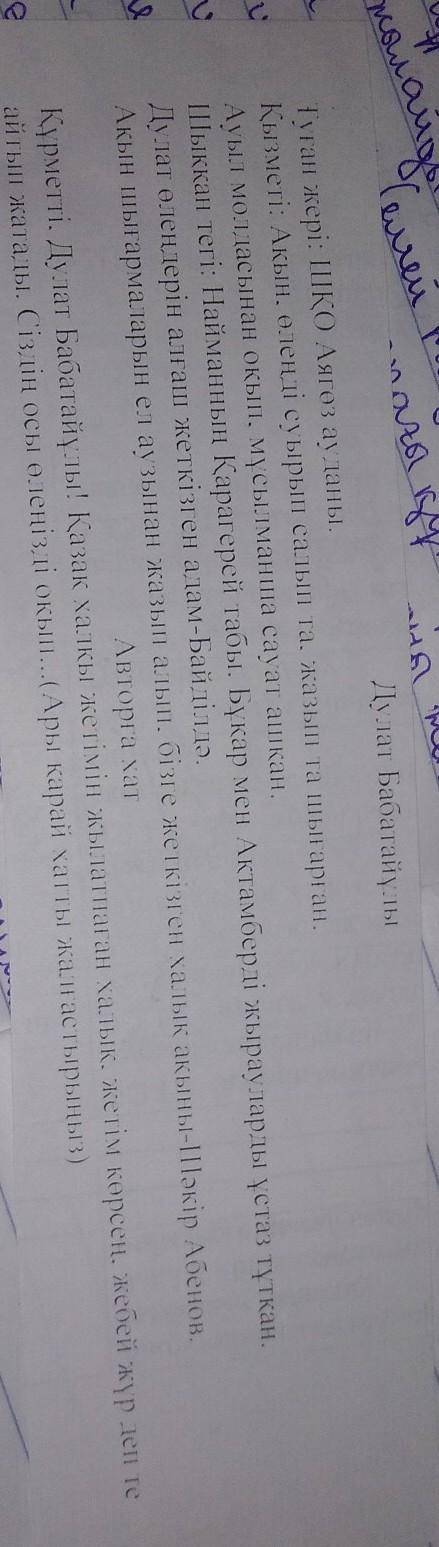 Дулат Бабатайұлы
Туған жері: ШҚО Аягөз ауданы.
Қызметі: Ақын, өлеңді суырып салып та, жазып та шығарған.
Ауыл молдасынан оқып, мұсылманша сауат ашқан.
Шыққан тегі: Найманның Қарагерей табы. Бұқар мен Ақтамберді жырауларды ұстаз тұтқан.
Дулат өлеңдерін алғаш жеткізген адам-Байділдә.
Ақын шығармаларын ел аузынан жазып алып, бізге жеткізген халық ақыны-Шәкір Абенов.
Авторға хат
Құрметті, Дулат Бабатайұлы! Қазақ халқы жетімін жылатпаған халық, жетім көрсең, жебей жүр деп те
айтып жатады. Сіздің осы өленізді оқып...(Ары қарай хатты жалғастырыңыз)